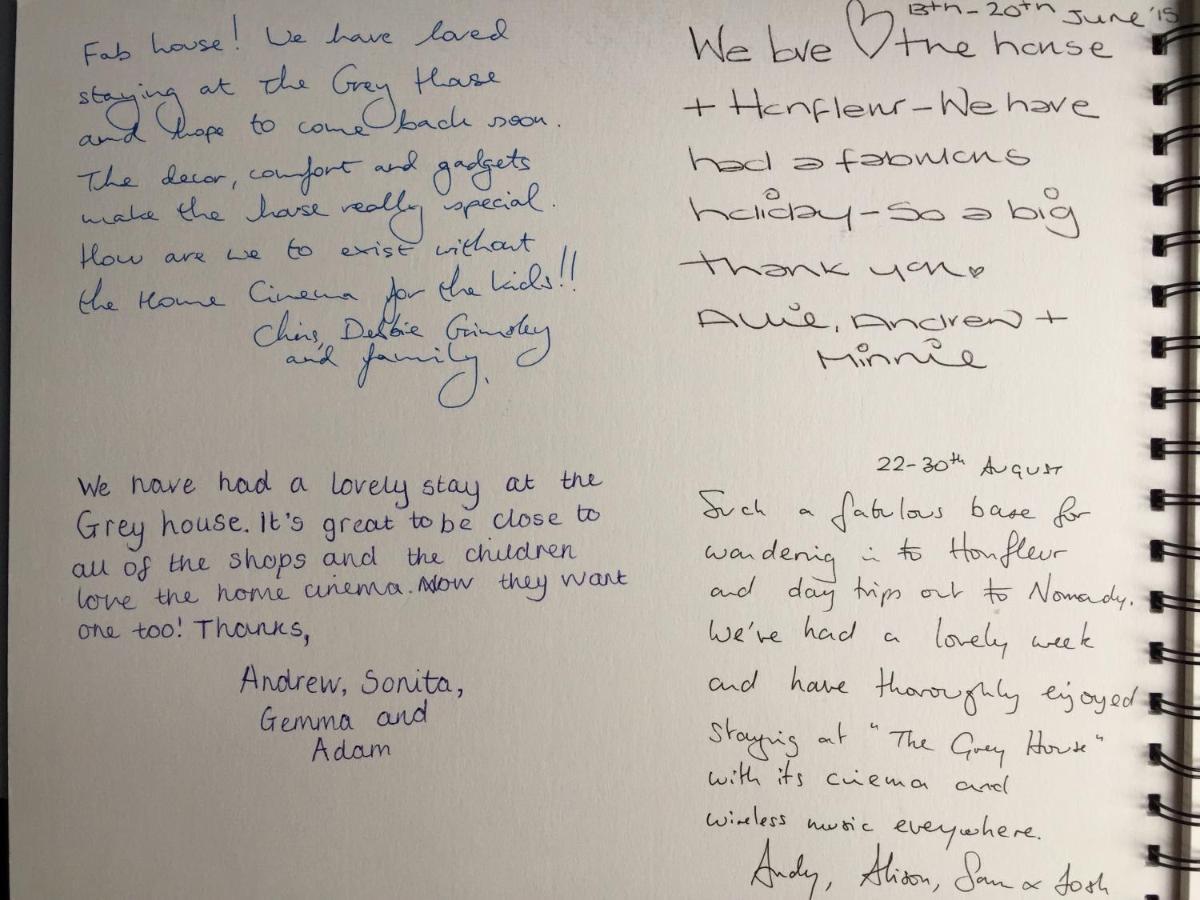 Fab house! We have loved
staying at the Grey House
and hope to come back soon.
The decor, comfort and gadgets
make the house really special.
How are we to exist without
the Home Cinema for the kids!!
Chris, Debbie Grimsley
and family.
13th-20th June '15
We love ♡ the house
+ Honfleur - We have
had a fabulous
holiday - So a big
thank you♡
Allie, Andrew +
Minnie
We have had a lovely stay at the
Grey house. It's great to be close to
all of the shops and the children
love the home cinema. Now they want
one too! Thanks,
Andrew, Sonita,
Gemma and
Adam
22-30th August
Such a fabulous base for
wandering in to Honfleur
and day trips out to Nomady.
We've had a lovely week
and have thoroughly enjoyed
staying at "The Grey House"
with its cinema and
wireless music everywhere.
Andy, Alison, Sam & Josh